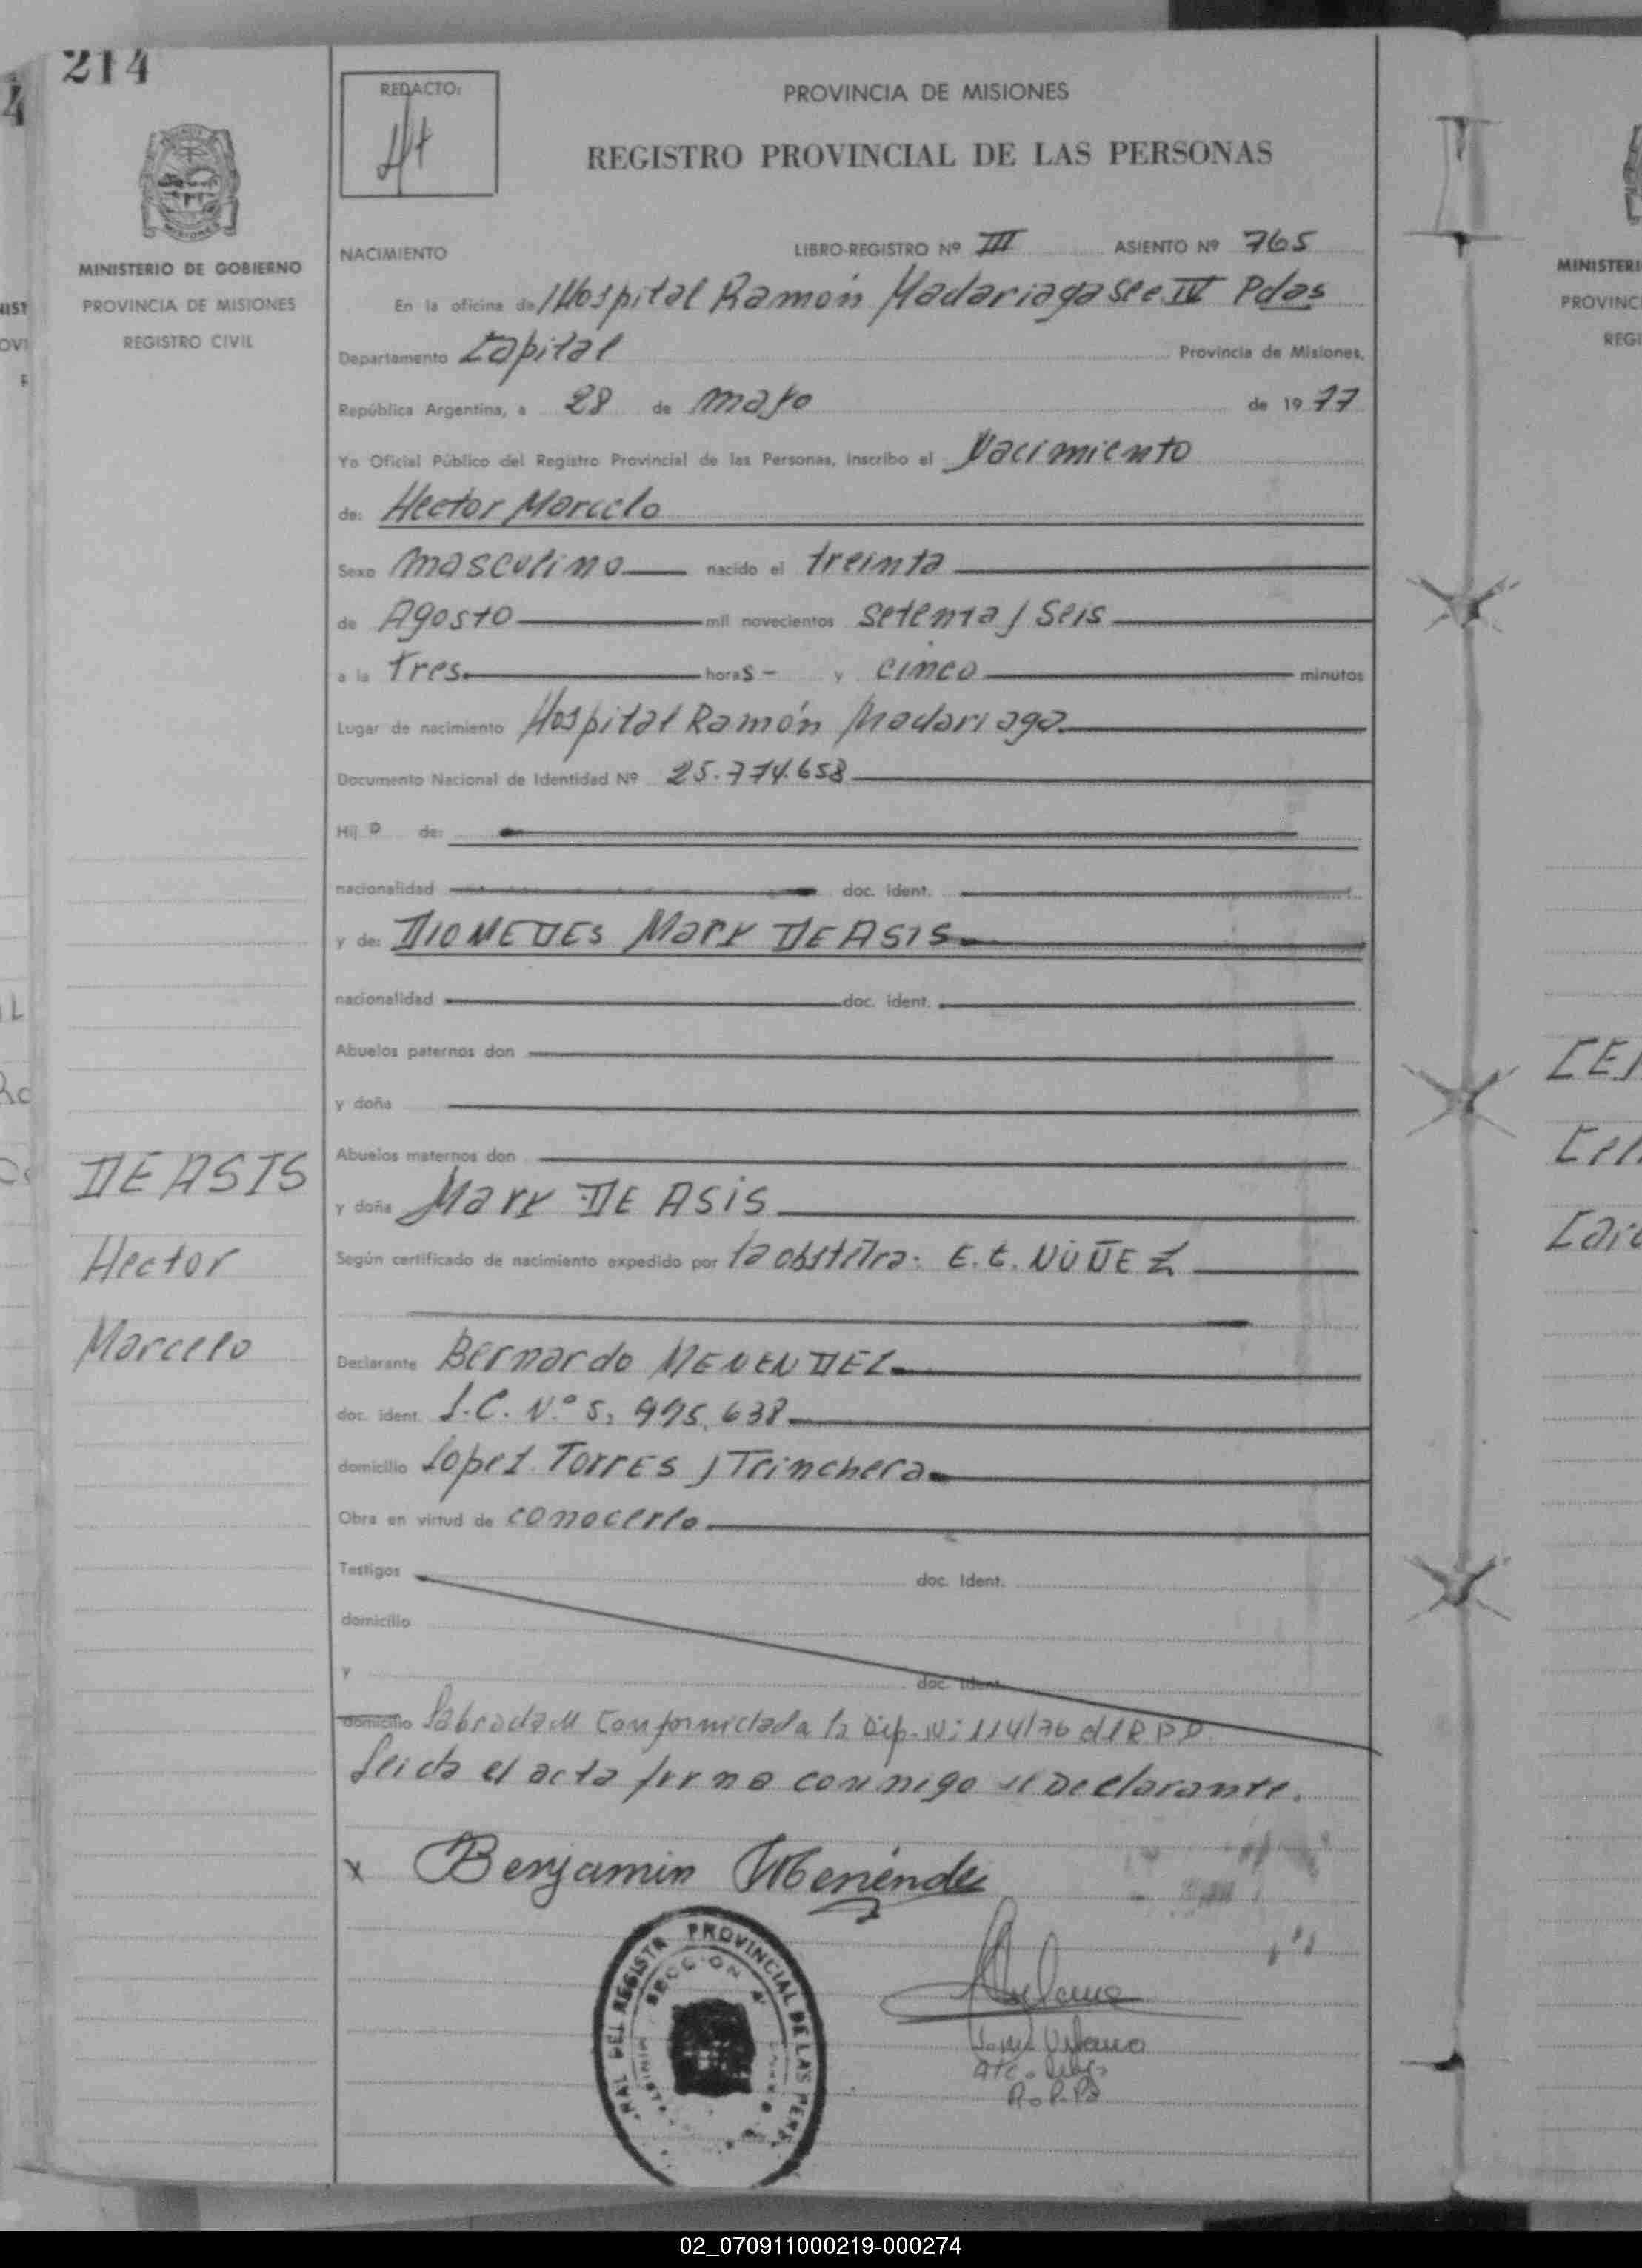 214
REDACTO:
PROVINCIA DE MISIONES
REGISTRO PROVINCIAL DE LAS PERSONAS
MINISTERIO DE GOBIERNO
PROVINCIA DE MISIONES
REGISTRO CIVIL
NACIMIENTO LIBRO-REGISTRO Nº III ASIENTO Nº 765
En la oficina de Hospital Ramón Madariaga See IV Pdas
Departamento Capital Provincia de Misiones,
República Argentina, a 28 de mayo de 1977
Yo Oficial Público del Registro Provincial de las Personas, inscribo el Nacimiento
de: Hector Marcelo
Sexo masculino nacido el treinta
de Agosto mil novecientos setenta y Seis
a la tres horas - y cinco minutos
Lugar de nacimiento Hospital Ramón Madariaga
Documento Nacional de Identidad Nº 25.774.658
Hijo de:
nacionalidad doc. ident.
y de: DIOMEDES Mary DE ASIS
nacionalidad doc. ident.
Abuelos paternos don
y doña
Abuelos maternos don
y doña Mary DE ASIS
DE ASIS
Hector
Marcelo
Según certificado de nacimiento expedido por la obstétra: E. E. NUÑEZ
Declarante Bernardo MENENDEZ
doc. ident. L.C. N.º 5,995,638
domicilio Lopez Torres y Trinchera
Obra en virtud de conocerlo
Testigos doc. Ident.
domicilio
y doc. Ident.
domicilio Labrada en Conformidad a la Disp. N: 114/76 del R.P.P.
Leida el acta firma conmigo el Declarante.
x Benjamin Menéndez
PROVINCIAL DE LAS PERS.
DEL REGISTR
SECCION 4
R.P.P.
MINISTERI
PROVINC
REGI
02_070911000219-000274